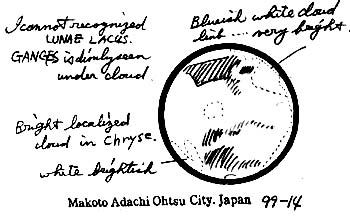 I cannot recognized
LUNAE LACUS.
GANGES is dimly seen
under cloud.
Blueish white cloud
limb ... very bright.
Bright localized
cloud in Chryse.
white brightish
Makoto Adachi Ohtsu City. Japan 99-14